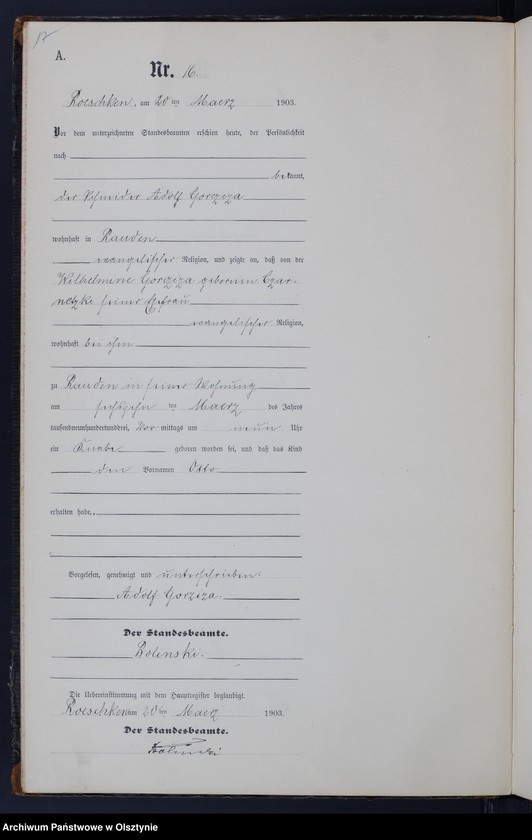 17
A.
Nr. 16.
Roeschken, am 20 ten Maerz 1903.
Vor dem unterzeichneten Standesbeamten erschien heute, der Persönlichkeit
nach
bekannt,
der Schneider Adolf Gorcziza
wohnhaft in Rauden
evangelischer Religion, und zeigte an, daß von der
Wilhelmine Gorcziza geborenen Czar-
netzki seiner Ehefrau
evangelischer Religion,
wohnhaft bei ihm
zu Rauden in seiner Wohnung
am sechszehn ten Maerz des Jahres
tausendneunhundertunddrei, Vor mittags um neun Uhr
ein Knabe geboren worden sei, und daß das Kind
den Vornamen Otto
erhalten habe,
Vorgelesen, genehmigt und unterschrieben.
Adolf Gorziza.
Der Standesbeamte.
Bolinski.
Die Uebereinstimmung mit dem Hauptregister beglaubigt.
Roeschken am 20 ten Maerz 1903.
Der Standesbeamte.
Bolinski
Archiwum Państwowe w Olsztynie